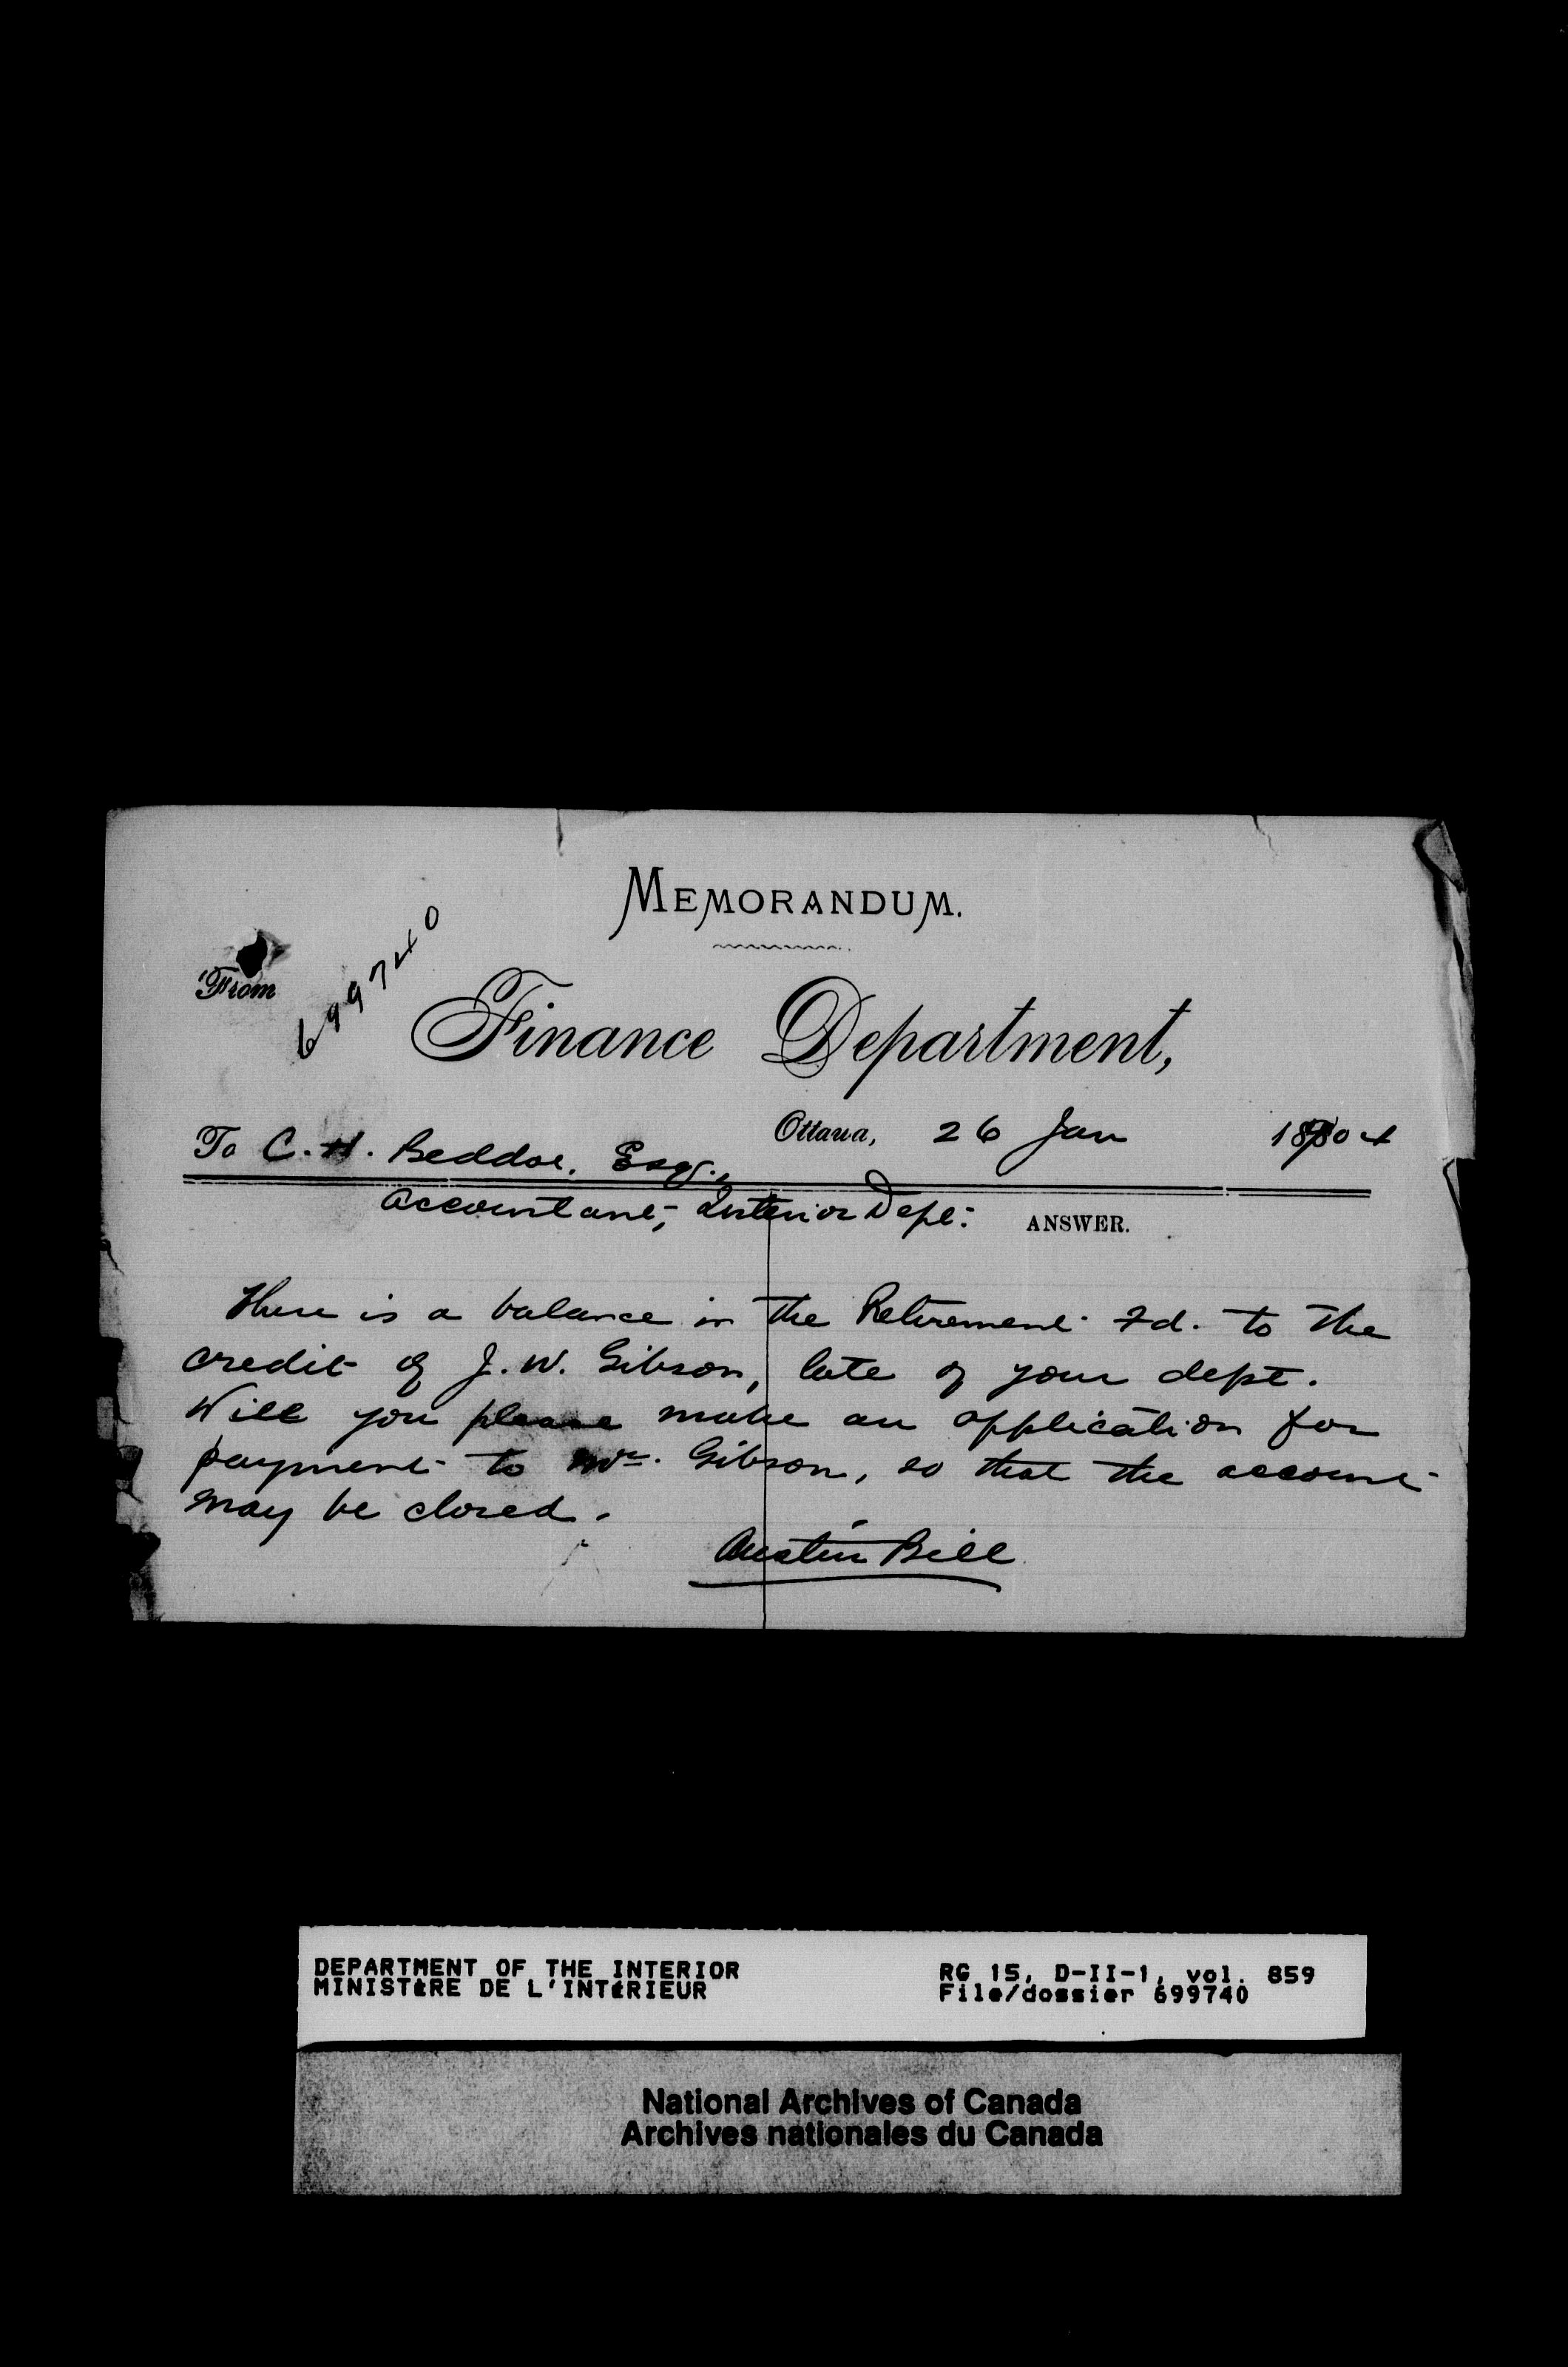 MEMORANDUM.
From
699740
Finance Department,
Ottawa, 26 Jan 1904
To C. H. Beddoe, Esq.,
Accountant, Interior Dept.
ANSWER.
There is a balance in the Retirement Fd. to the
credit of J. W. Gibson, late of your dept.
Will you please make an application for
payment to Mr. Gibson, so that the account
may be closed.
Austin Bill
DEPARTMENT OF THE INTERIOR
MINISTÈRE DE L'INTÉRIEUR
RG 15, D-II-1, vol. 859
File/dossier 699740
National Archives of Canada
Archives nationales du Canada